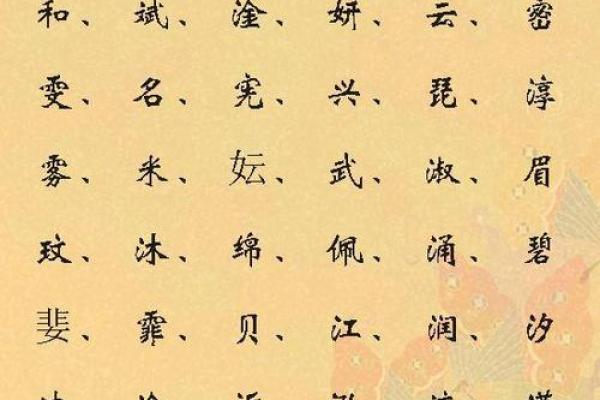 和、斌、淦、妍、云、密
雯、名、宪、兴、琵、淳
雾、米、妘、武、淑、眉
玟、沐、绵、佩、涌、碧
婓、霏、贝、江、润、汐